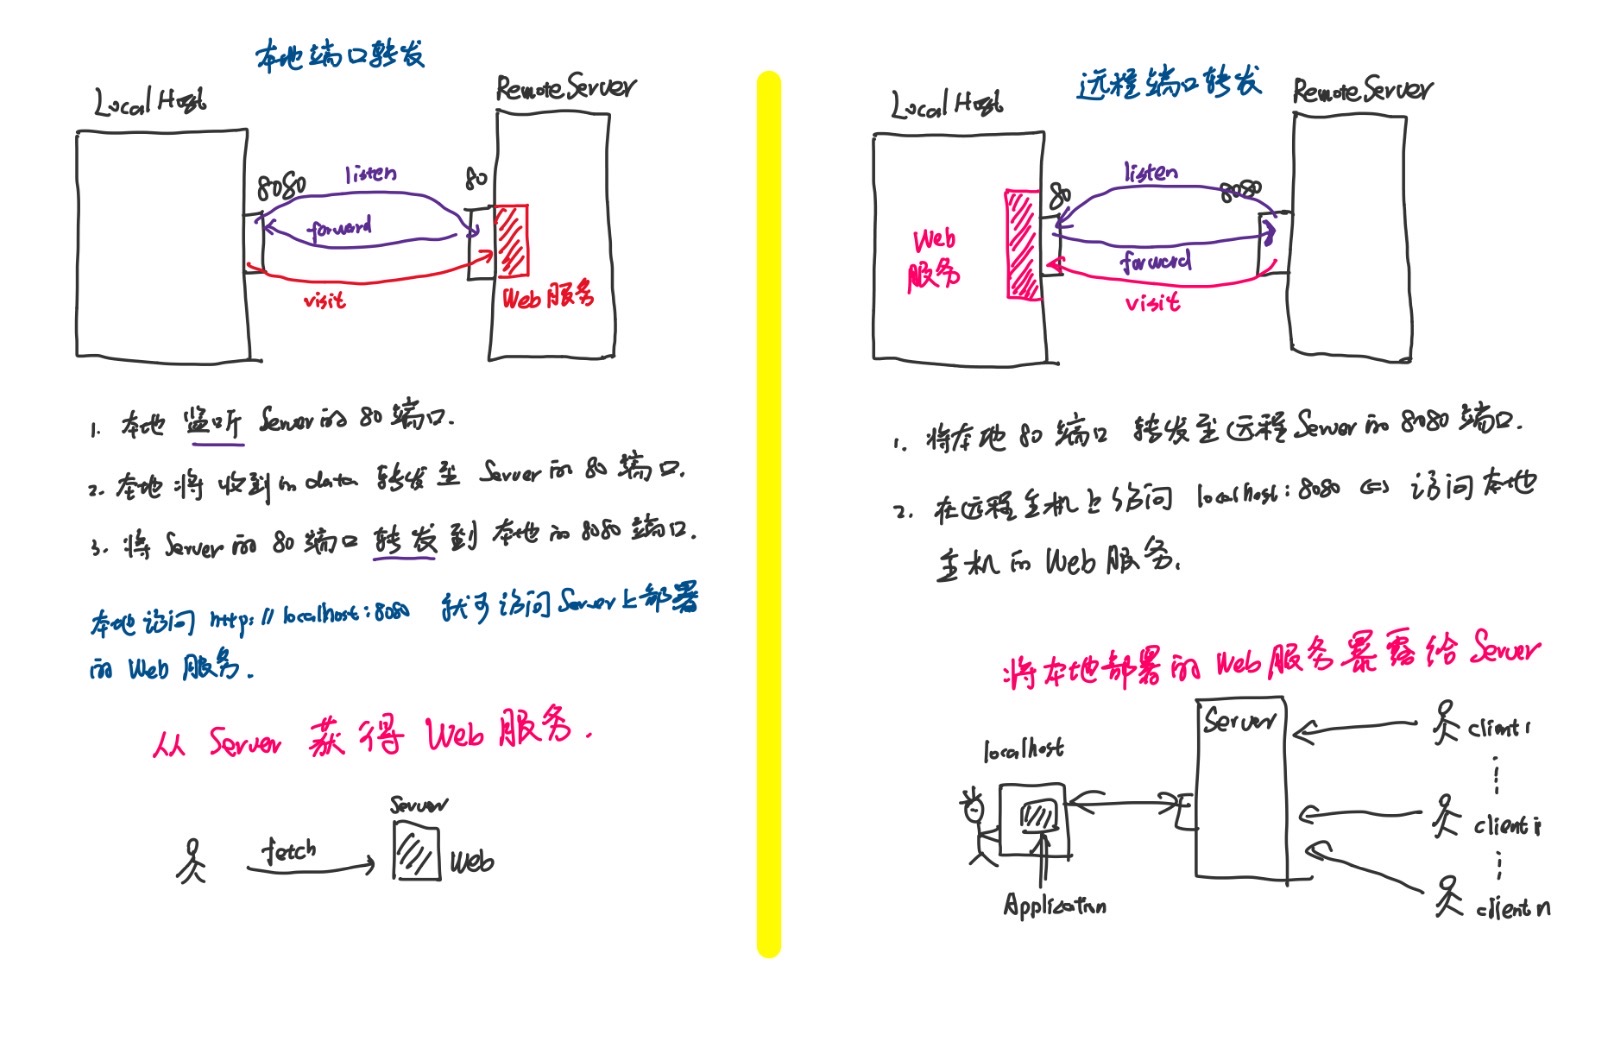 本地端口转发
Local Host
Remote Server
8080
listen
80
forward
visit
Web 服务
1. 本地 监听 Server 的 80 端口.
2. 本地 将 收到的 data 转发至 Server 的 80 端口.
3. 将 Server 的 80 端口 转发到 本地的 8080 端口.
本地访问 http://localhost:8080 就可访问 Server 上部署
的 Web 服务.
从 Server 获得 Web 服务.
Server
fetch
Web
远程端口转发
Local Host
Remote Server
listen
80
8080
Web
服务
forward
visit
1. 将本地 80 端口 转发至远程 Server 的 8080 端口.
2. 在远程主机上访问 localhost:8080 <=> 访问本地
主机的 Web 服务.
将本地部署的 Web 服务暴露给 Server
Server
client 1
localhost
client i
Application
client n